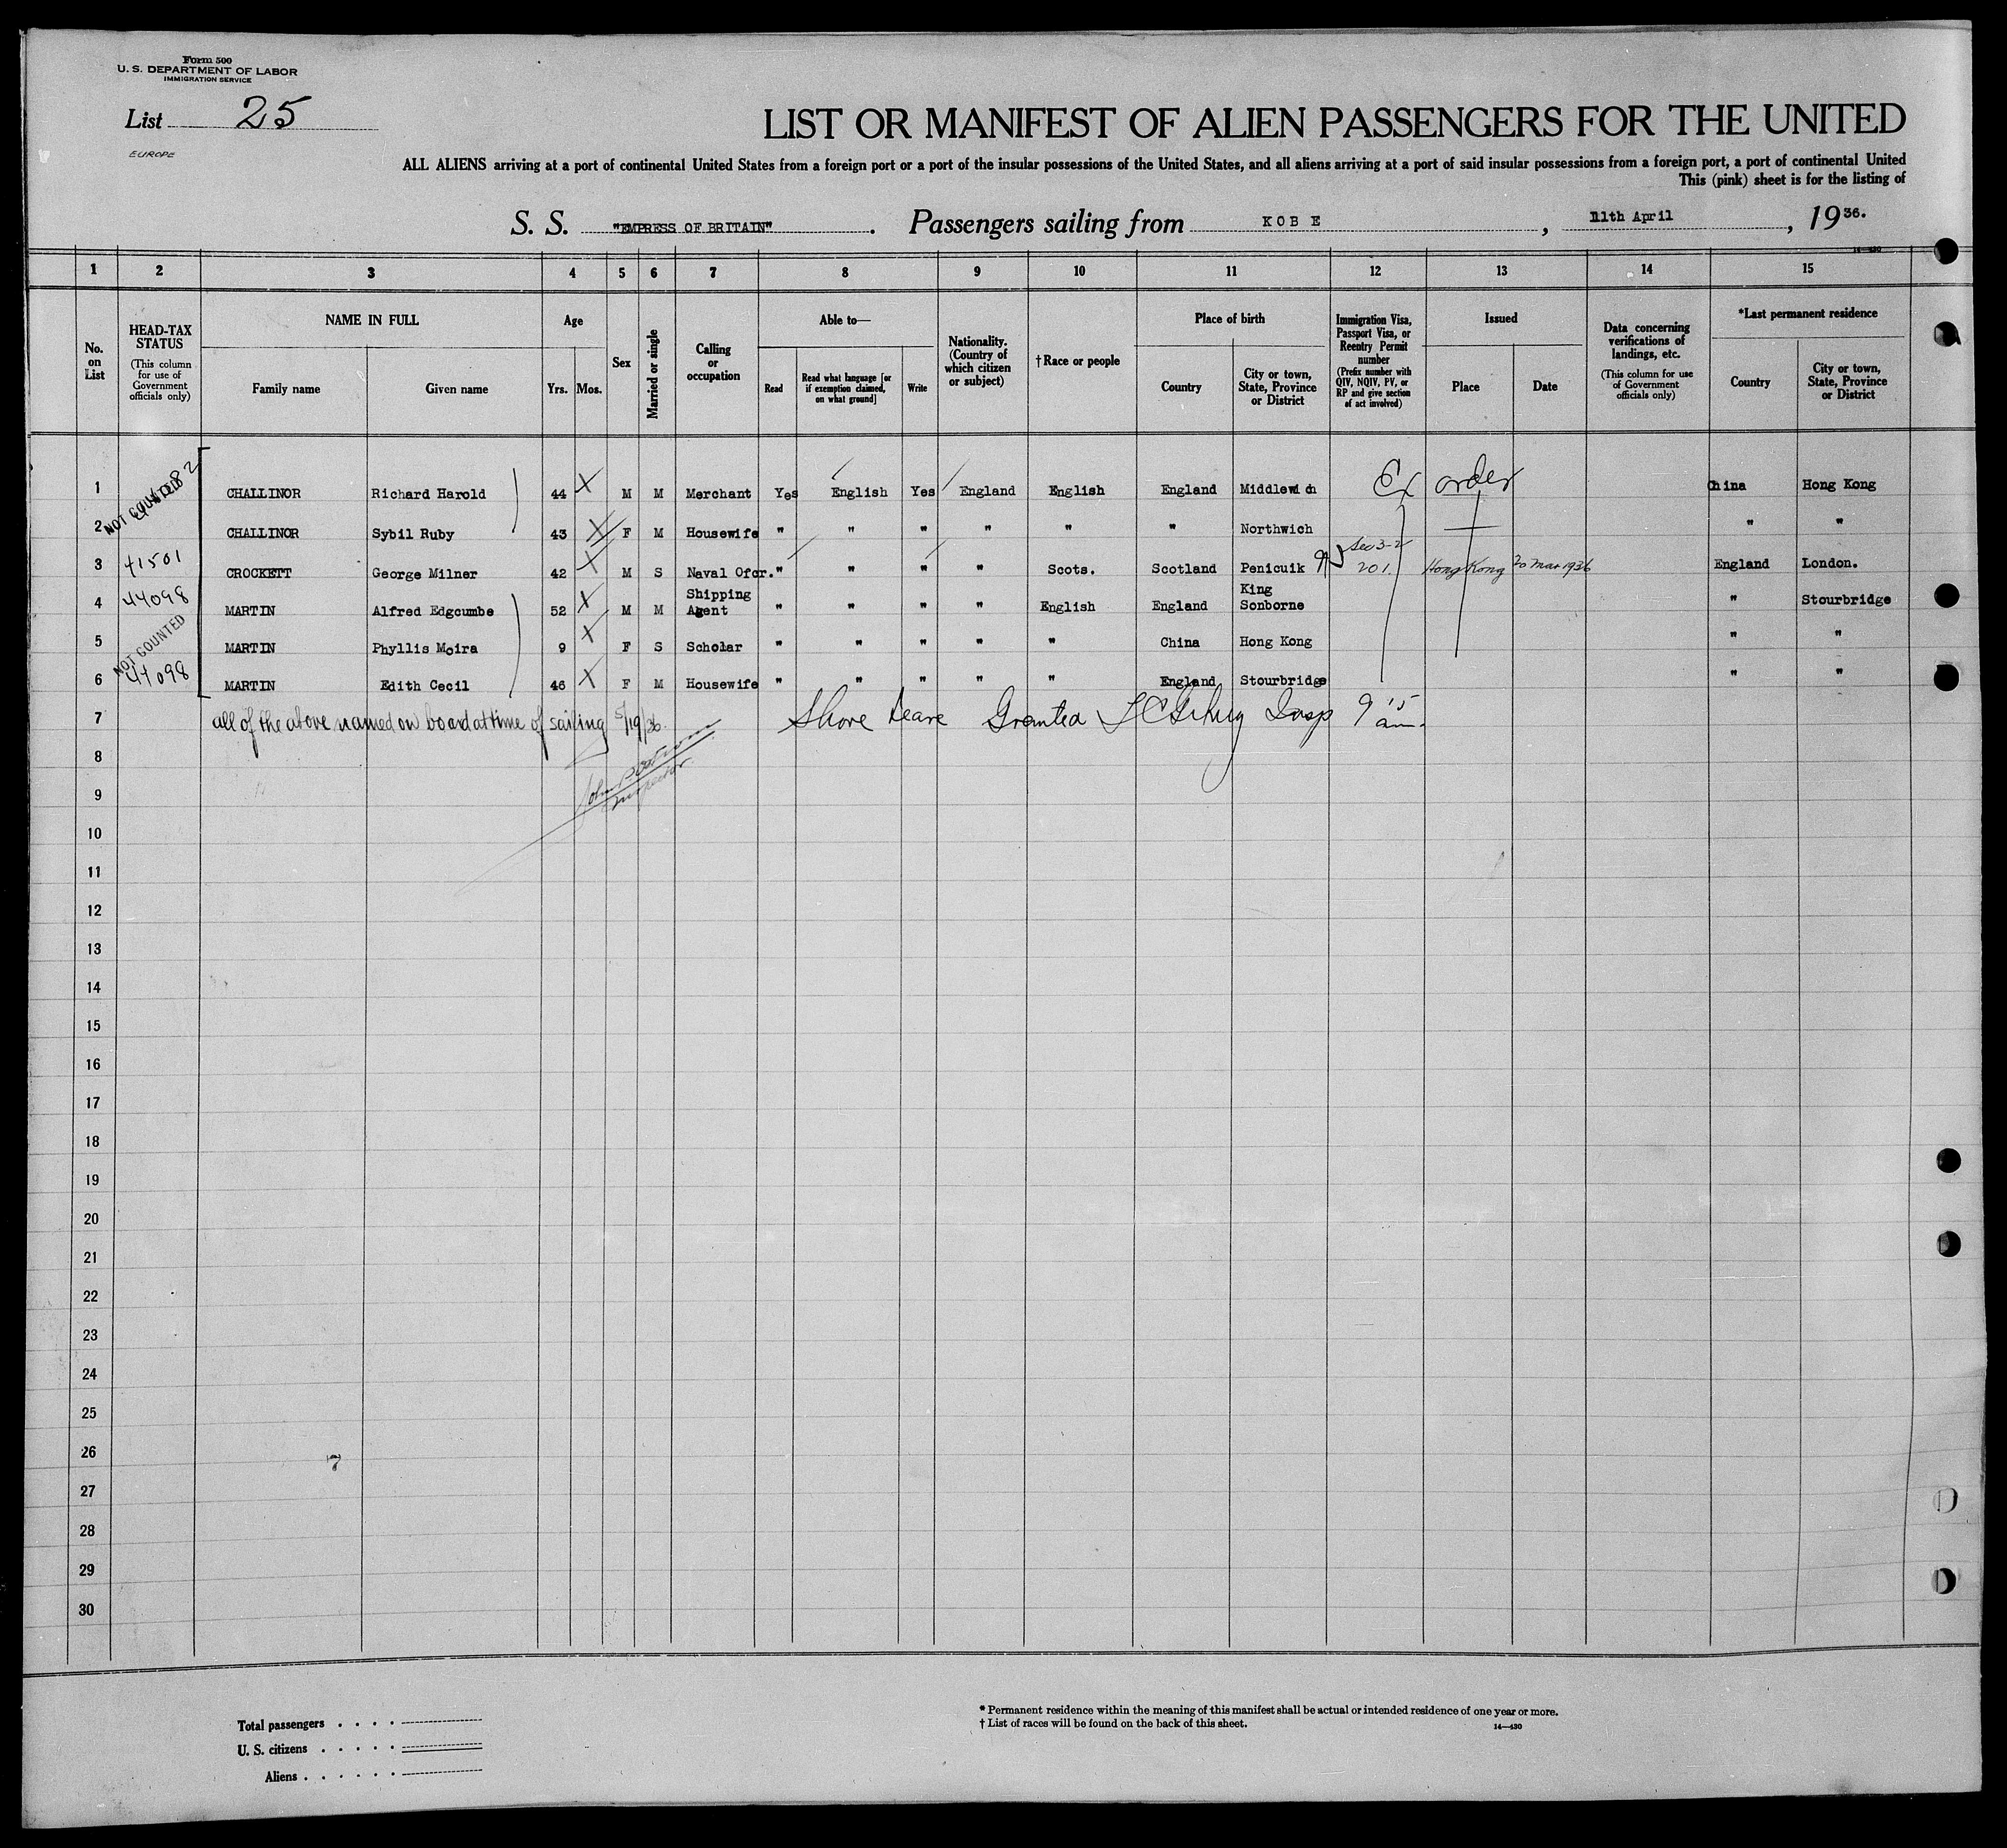 Form 500
U. S. DEPARTMENT OF LABOR
IMMIGRATION SERVICE
List 25
EUROPE
LIST OR MANIFEST OF ALIEN PASSENGERS FOR THE UNITED
ALL ALIENS arriving at a port of continental United States from a foreign port or a port of the insular possessions of the United States, and all aliens arriving at a port of said insular possessions from a foreign port, a port of continental United
This (pink) sheet is for the listing of
S. S. "EMPRESS OF BRITAIN". Passengers sailing from KOBE, 11th April, 1936.
14—430
1 2 3 4 5 6 7 8 9 10 11 12 13 14 15
No. on List
HEAD-TAX STATUS
(This column for use of Government officials only)
NAME IN FULL
Family name Given name
Age
Yrs. Mos.
Sex
Married or single
Calling or occupation
Able to—
Read
Read what language [or if exemption claimed, on what ground]
Write
Nationality. (Country of which citizen or subject)
†Race or people
Place of birth
Country
City or town, State, Province or District
Immigration Visa, Passport Visa, or Reentry Permit number
(Prefix number with QIV, NQIV, PV, or RP and give section of act involved)
Issued
Place Date
Data concerning verifications of landings, etc.
(This column for use of Government officials only)
*Last permanent residence
Country
City or town, State, Province or District
1 CHALLINOR Richard Harold 44 X M M Merchant Yes English Yes England English England Middlewich Ex order China Hong Kong
NOT COUNTED
2 CHALLINOR Sybil Ruby 43 X F M Housewife " " " " " " Northwich " "
3 41501 CROCKETT George Milner 42 X M S Naval Ofcr. " " " " Scots. Scotland Penicuik Sec 3-2 201 Hong Kong 20 Mar 1936 England London.
4 44098 MARTIN Alfred Edgcumbe 52 X M M Shipping Agent " " " " English England King Sonborne " Stourbridge
NOT COUNTED
5 MARTIN Phyllis Moira 9 X F S Scholar " " " " " China Hong Kong " "
6 44098 MARTIN Edith Cecil 46 X F M Housewife " " " " " England Stourbridge " "
7 all of the above named on board at time of sailing 5/19/36. Shore Leave Granted Insp 9 15 am.
Inspector.
8
9
10
11
12
13
14
15
16
17
18
19
20
21
22
23
24
25
26
7
27
28
29
30
Total passengers
U. S. citizens
Aliens
* Permanent residence within the meaning of this manifest shall be actual or intended residence of one year or more.
† List of races will be found on the back of this sheet.
14—430